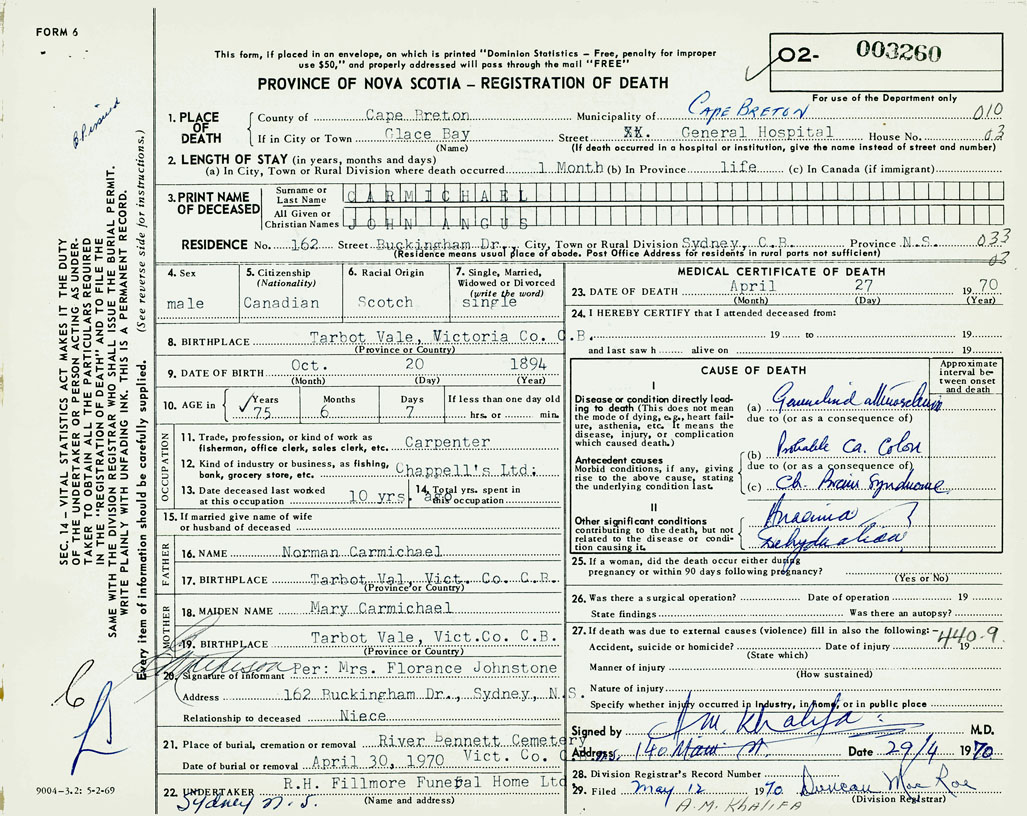 FORM 6
This form, if placed in an envelope, on which is printed "Dominion Statistics – Free, penalty for improper
use $50," and properly addressed will pass through the mail "FREE"
PROVINCE OF NOVA SCOTIA – REGISTRATION OF DEATH
O2- 003260
For use of the Department only
1. PLACE OF DEATH
County of Cape Breton Municipality of CAPE BRETON 010
If in City or Town Glace Bay Street XX. General Hospital House No. 03
(Name) (If death occurred in a hospital or institution, give the name instead of street and number)
2. LENGTH OF STAY (in years, months and days)
(a) In City, Town or Rural Division where death occurred 1 Month (b) In Province life (c) In Canada (if immigrant)
3. PRINT NAME OF DECEASED
Surname or Last Name CARMICHAEL
All Given or Christian Names JOHN ANGUS
RESIDENCE No. 162 Street Buckingham Dr., City, Town or Rural Division Sydney, C.B. Province N.S. 033
(Residence means usual place of abode. Post Office Address for residents in rural parts not sufficient) 03
4. Sex male
5. Citizenship (Nationality) Canadian
6. Racial Origin Scotch
7. Single, Married, Widowed or Divorced (write the word) single
8. BIRTHPLACE Tarbot Vale, Victoria Co. C.B.
(Province or Country)
9. DATE OF BIRTH Oct. 20 1894
(Month) (Day) (Year)
10. AGE in Years Months Days If less than one day old
75 6 7 hrs. or min.
OCCUPATION
11. Trade, profession, or kind of work as
fisherman, office clerk, sales clerk, etc. Carpenter
12. Kind of industry or business, as fishing,
bank, grocery store, etc. Chappell's Ltd:
13. Date deceased last worked at this occupation 10 yrs. ago
14. Total yrs. spent in occupation
15. If married give name of wife
or husband of deceased
FATHER
16. NAME Norman Carmichael
17. BIRTHPLACE Tarbot Val, Vict. Co. C.B.
(Province or Country)
MOTHER
18. MAIDEN NAME Mary Carmichael
19. BIRTHPLACE Tarbot Vale, Vict.Co. C.B.
(Province or Country)
20. Signature of informant Per: Mrs. Florance Johnstone
Address 162 Buckingham Dr., Sydney, N.S.
Relationship to deceased Niece
21. Place of burial, cremation or removal River Bennett Cemetery
Vict. Co. C.B.
Date of burial or removal April 30, 1970
22. UNDERTAKER R.H. Fillmore Funeral Home Ltd
Sydney N.S. (Name and address)
MEDICAL CERTIFICATE OF DEATH
23. DATE OF DEATH April 27 1970
(Month) (Day) (Year)
24. I HEREBY CERTIFY that I attended deceased from:
19 to 19
and last saw h alive on 19
CAUSE OF DEATH
Approximate interval between onset and death
I
Disease or condition directly leading to death (This does not mean the mode of dying, e.g., heart failure, asthenia, etc. It means the disease, injury, or complication which caused death.)
(a)
due to (or as a consequence of)
Antecedent causes
Morbid conditions, if any, giving rise to the above cause, stating the underlying condition last.
(b) Probable Ca. Colon
due to (or as a consequence of)
(c) Ch. Brain Syndrome
II
Other significant conditions
contributing to the death, but not related to the disease or condition causing it.
Anaemia
Dehydration
25. If a woman, did the death occur either during
pregnancy or within 90 days following pregnancy?
(Yes or No)
26. Was there a surgical operation? Date of operation 19
State findings Was there an autopsy?
27. If death was due to external causes (violence) fill in also the following: – 440-9.
Accident, suicide or homicide? Date of injury 19
(State which)
Manner of injury
(How sustained)
Nature of injury
Specify whether injury occurred in industry, in home, or in public place
Signed by A.M. Khalifa M.D.
Address 140 Main St Date 29/4 1970
28. Division Registrar's Record Number
29. Filed May 12 1970 Duncan Mac Rae
(Division Registrar)
A.M. KHALIFA
SEC. 14 – VITAL STATISTICS ACT MAKES IT THE DUTY
OF THE UNDERTAKER OR PERSON ACTING AS UNDER-
TAKER TO OBTAIN ALL THE PARTICULARS REQUIRED
IN THE "REGISTRATION OF DEATH" AND TO FILE THE
SAME WITH THE DIVISION REGISTRAR WHO SHALL ISSUE THE BURIAL PERMIT.
WRITE PLAINLY WITH UNFADING INK. THIS IS A PERMANENT RECORD.
Every item of information should be carefully supplied. (See reverse side for instructions.)
9004-3.2: 5-2-69